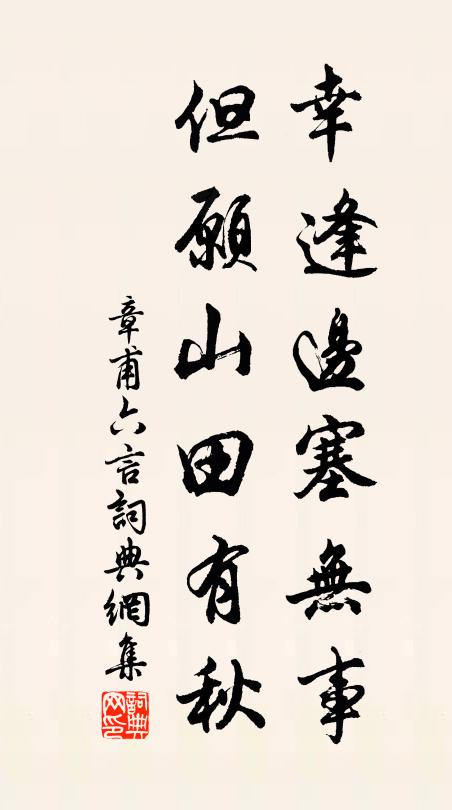 幸逢邊塞無事
但願山田有秋
章甫六言詞典網集
詞典网印